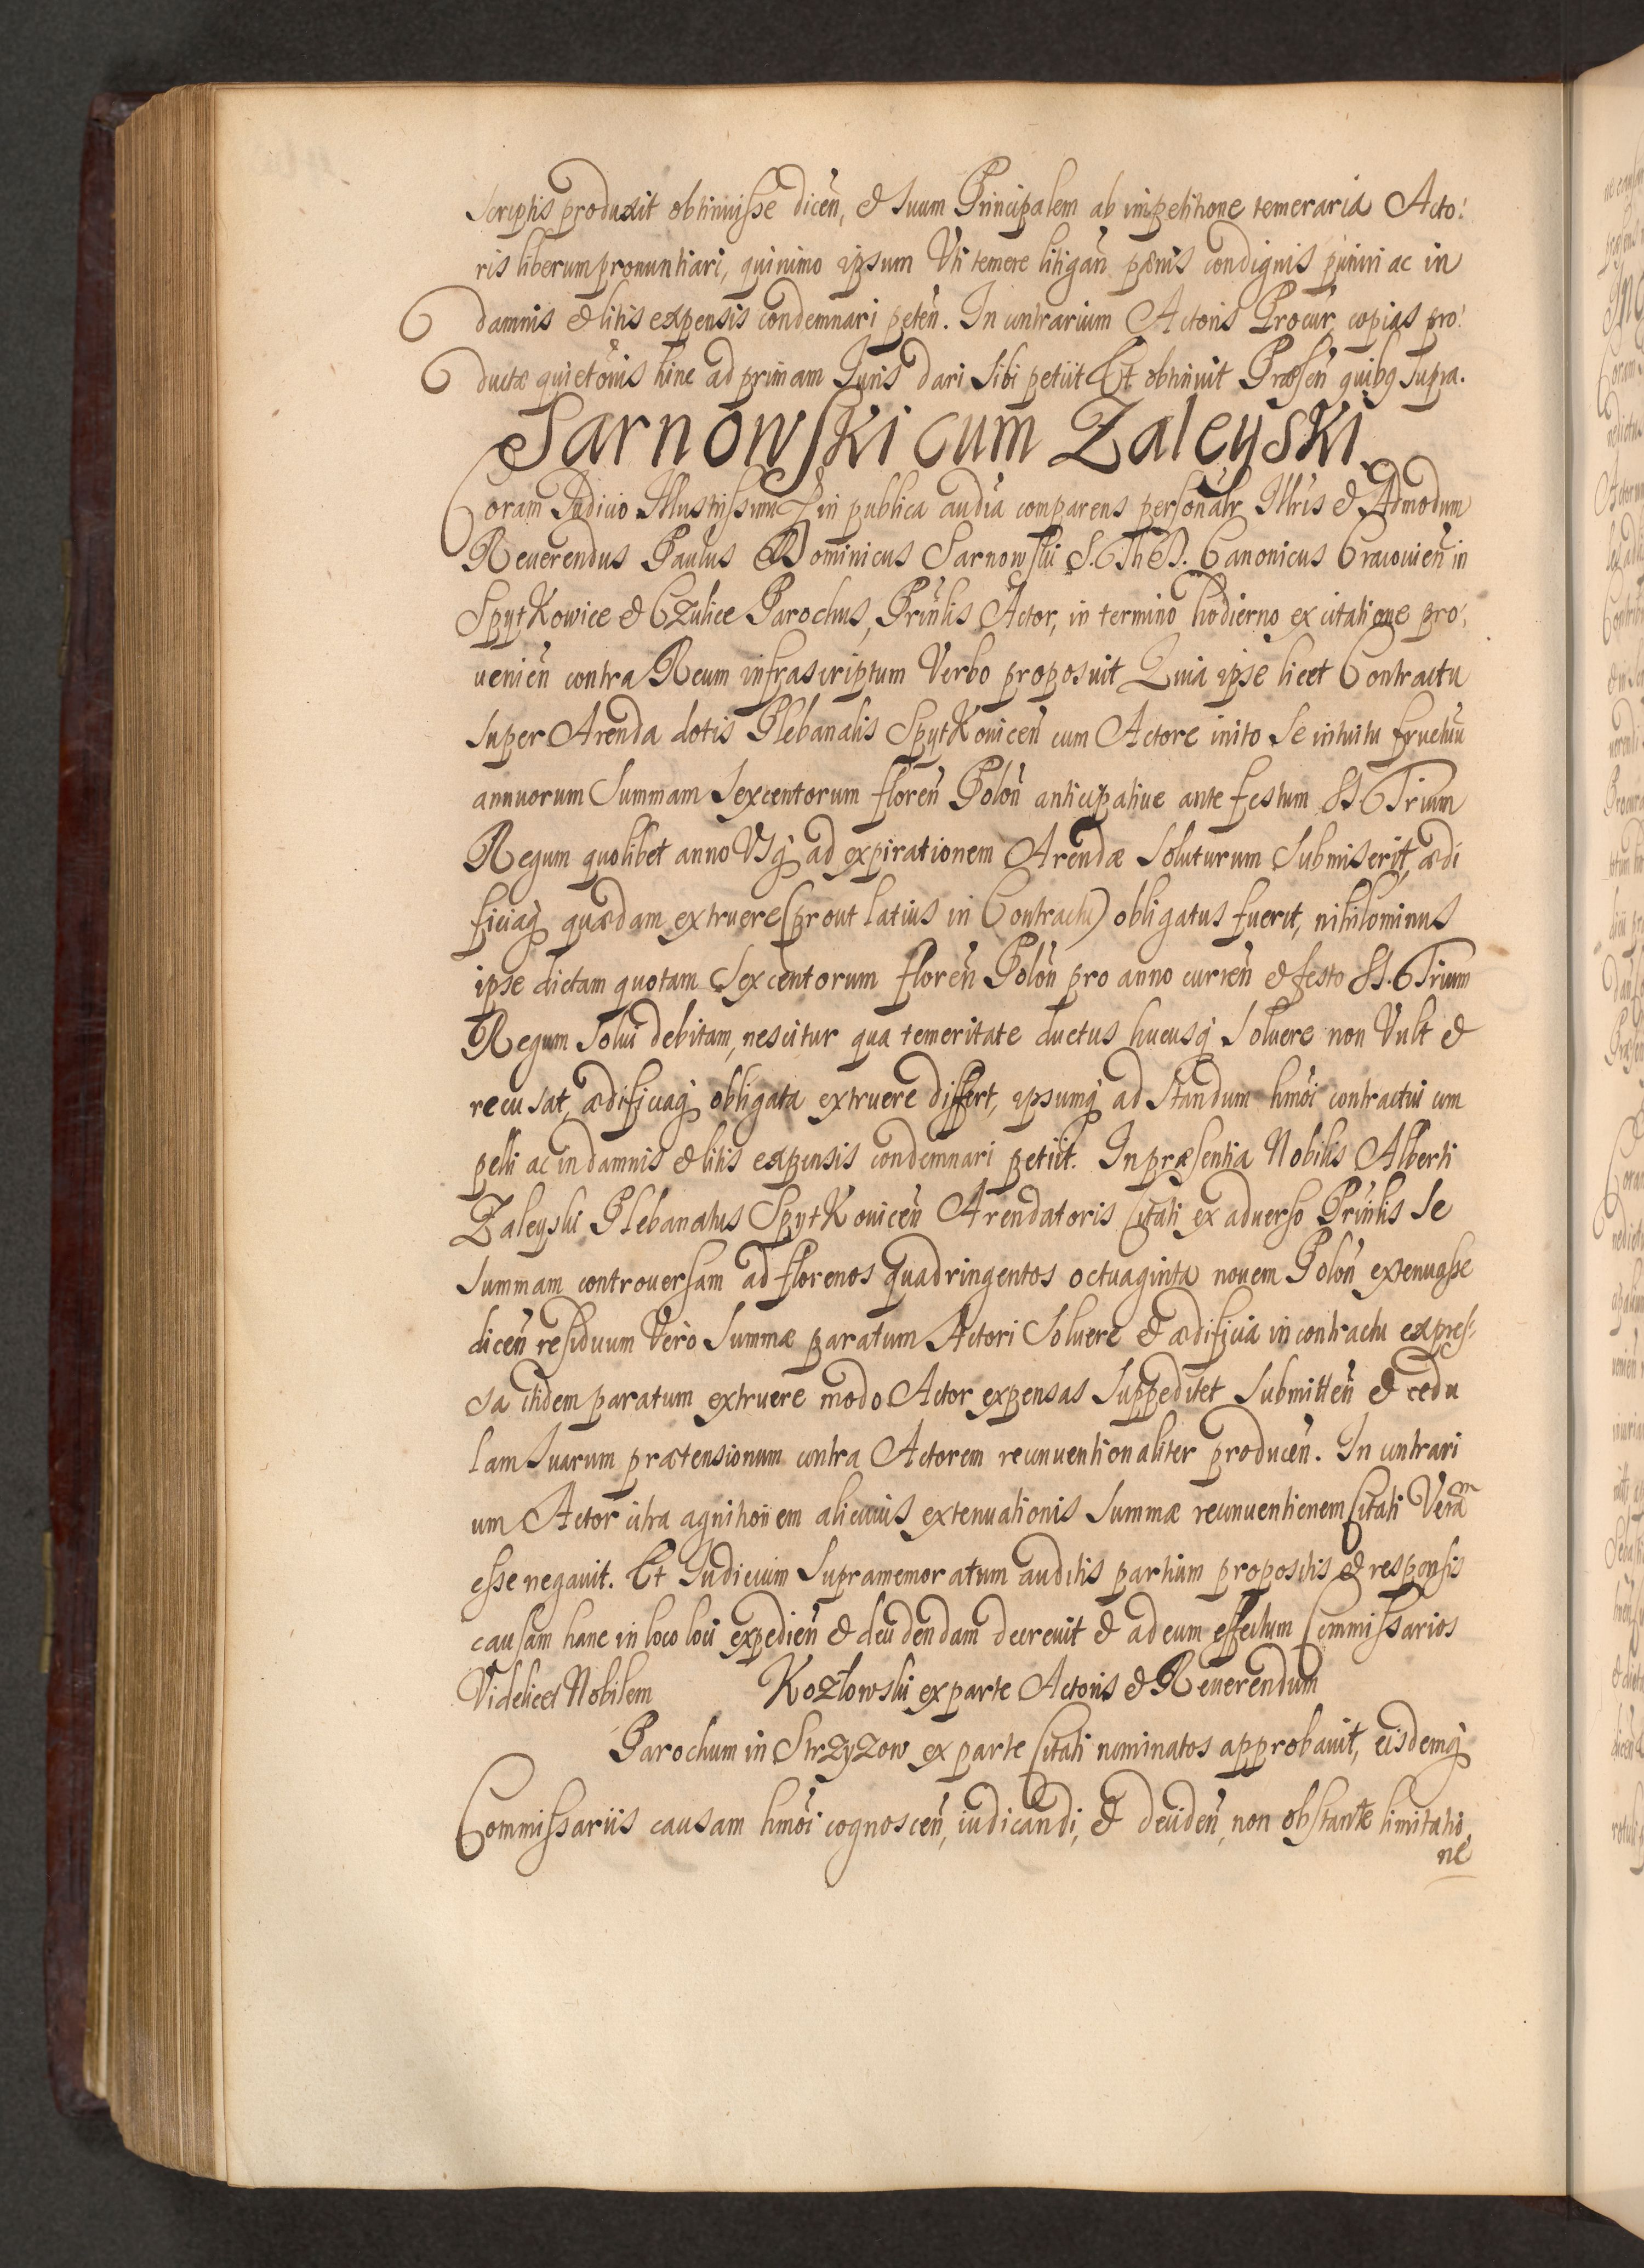 scriptis produxit obtinuisse dicen̄, & suum Principalem ab impetitione temeraria Acto:
ris liberum pronuntiari, quinimo ipsum Vti temere litigan̄ pænis condignis puniri ac in
damnis & litis expensis condemnari peten̄. In contrarium Actoris Procur̄ copias pro:
ductæ quietoīis hinc ad primam Iuris dari sibi petiit Et obtinuit Præsen̄ quibg supra.
Sarnowski cum Zaleyski
Coram Iudicio Illustrissimi in publica audīa comparens personalr̄ Illr̄is & Admodum
Reuerendus Paulus Dominicus Sarnowski S. Th. D. Canonicus Cracouien̄ in
Spytkowice & Czulice Parochus, Prin̄lis Actor, in termino hodierno ex citatione pro:
uenien̄ contra Reum infrascriptum Verbo proposuit Quia ipse licet Contractu
super Arenda dotis Plebanalis Spytkouicen̄ cum Actore inito se intuitu fructuū
annuorum summam sexcentorum floren̄ Polon̄ anticipatiue ante festum SS. Trium
Regum quolibet anno Vsq́ ad expirationem Arendæ soluturum submiserit, ædi
ficiaq́ quædam extruere (prout latius in Contractu) obligatus fuerit, nihilominus
ipse dictam quotam sexcentorum floren̄ Polon̄ pro anno curren̄ & festo SS. Trium
Regum solui debitam, nescitur qua temeritate ductus hucusq́ soluere non Vult &
recusat, ædificiaq́ obligata extruere differt, ipsumq́ ad standum hmōi contractui com
pelli ac in damnis & litis expensis condemnari petiit. In præsentia Nobilis Alberti
Zaleyski Plebanatus Spytkouicen̄ Arendatoris Citati ex aduerso Prin̄lis se
summam controuersam ad florenos quadringentos octuaginta nouem Polon̄ extenuasse
dicen̄ residuum Verò summæ paratum Actori soluere & ædificia in contractu expres:
sa itidem paratum extruere modo Actor expensas suppeditet submitten̄ & cedu
lam suarum prætensionum contra Actorem reconuentionaliter producen̄. In contrari
um Actor citra agnitionem alicuius extenuationis summæ reconuentionem Citati Veram
esse negauit. Et Iudicium supramemoratum auditis partium propositis & responsis
causam hanc in loco loci expedien̄ & decidendam decreuit & ad eum effectum Commissarios
Videlicet Nobilem Kozłowski ex parte Actoris & Reuerendum
Parochum in Strzyzow ex parte Citati nominatos approbauit, eisdemq́
Commissariis causam hmōi cognoscen̄, iudicandi, & deciden̄, non obstante limitatio
ne